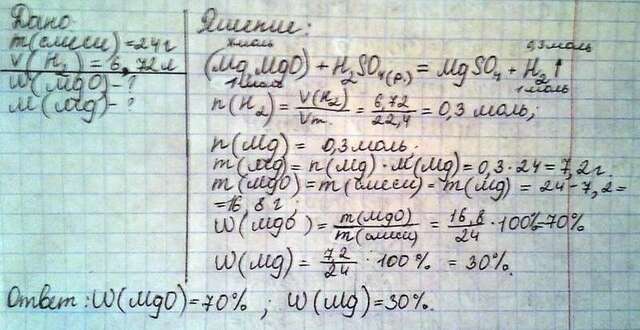 Дано
m(смеси) = 24 г
V(H₂) = 6,72 л
W(MgO) - ?
M(Mg) - ?
Решение:
x моль 0,3 моль
(Mg, MgO) + H₂SO₄(р.) = MgSO₄ + H₂↑
1 моль 1 моль
n(H₂) = V(H₂)/Vm = 6,72/22,4 = 0,3 моль;
n(Mg) = 0,3 моль.
m(Mg) = n(Mg) · M(Mg) = 0,3 · 24 = 7,2 г.
m(MgO) = m(смеси) - m(Mg) = 24 - 7,2 =
= 16,8 г
W(MgO) = m(MgO)/m(смеси) = 16,8/24 · 100% = 70%
W(Mg) = 7,2/24 · 100% = 30%.
Ответ: W(MgO) = 70%; W(Mg) = 30%.